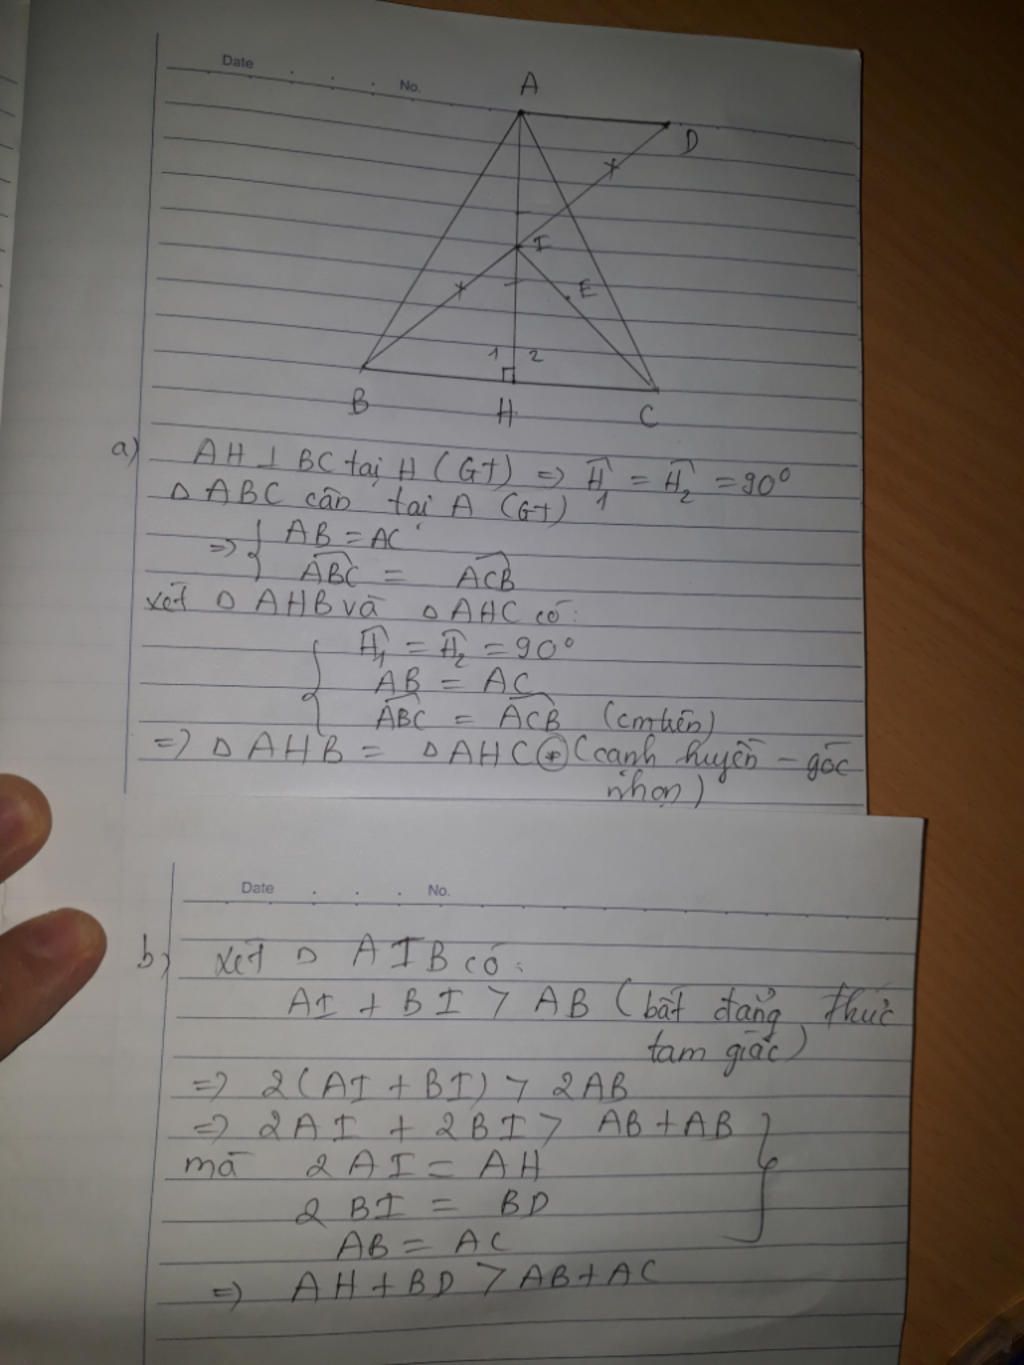 Date
No.
A
D
I
E
1 2
B
H
C
a) AH ⊥ BC tại H (GT) => Ĥ₁ = Ĥ₂ = 90°
Δ ABC cân tại A (GT)
=> { AB = AC
ABC = ACB
xét Δ AHB và Δ AHC có:
{ Ĥ₁ = Ĥ₂ = 90°
AB = AC
ABC = ACB (cmtrên)
=> Δ AHB = Δ AHC (*) (cạnh huyền - góc
nhọn)
Date
No.
b) xét Δ AIB có:
AI + BI > AB (bất đẳng thức
tam giác)
=> 2(AI + BI) > 2AB
=> 2AI + 2BI > AB + AB
mà 2AI = AH
2BI = BD
AB = AC
=> AH + BD > AB + AC